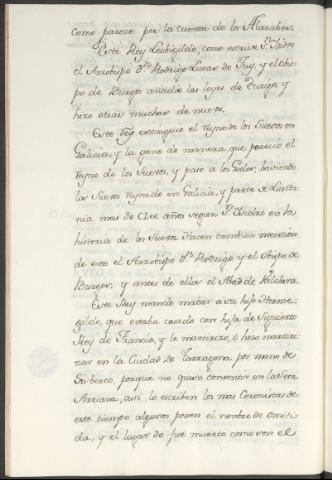 como parece por la cuenta de los Alarabes.
Este Rey Leobigildo, como escrive Sn. Isidro
el Arzobispo Dn. Rodrigo Lucas de Tuy, y el Obis-
po de Burgos añadió las leyes de Eurigo y
hizo otras muchas de nuevo.
Este Rey extinguió el Reyno de los Suevos en
Galicia, y la gano de manera, que pareció el
Reyno de los Suevos, y paso a los Godos, haviendo
los Suevos reynado en Galicia, y parte de Lusita-
nia mas de años segun Sn. Isidro en la
historia de los Suevos. Hacen tambien mencion
de esto el Arzobispo Dn. Rodrigo y el Obispo de
Burgos, y antes de ellos el Abad de Valclara.
Este Rey mandó matar a su hijo Herme-
gildo, que estaba casado con hija de Sigiberto
Rey de Francia, y le martirizo, ó hizo martiri-
zar en la Ciudad de Tarragona por mano de
Sisberto, porque no quiso consentir en la Seta
Arriana, asi lo escriben los mas Coronistas de
este tiempo algunos ponen el nombre de omiti-
da, y el lugar do fue muerto como son el